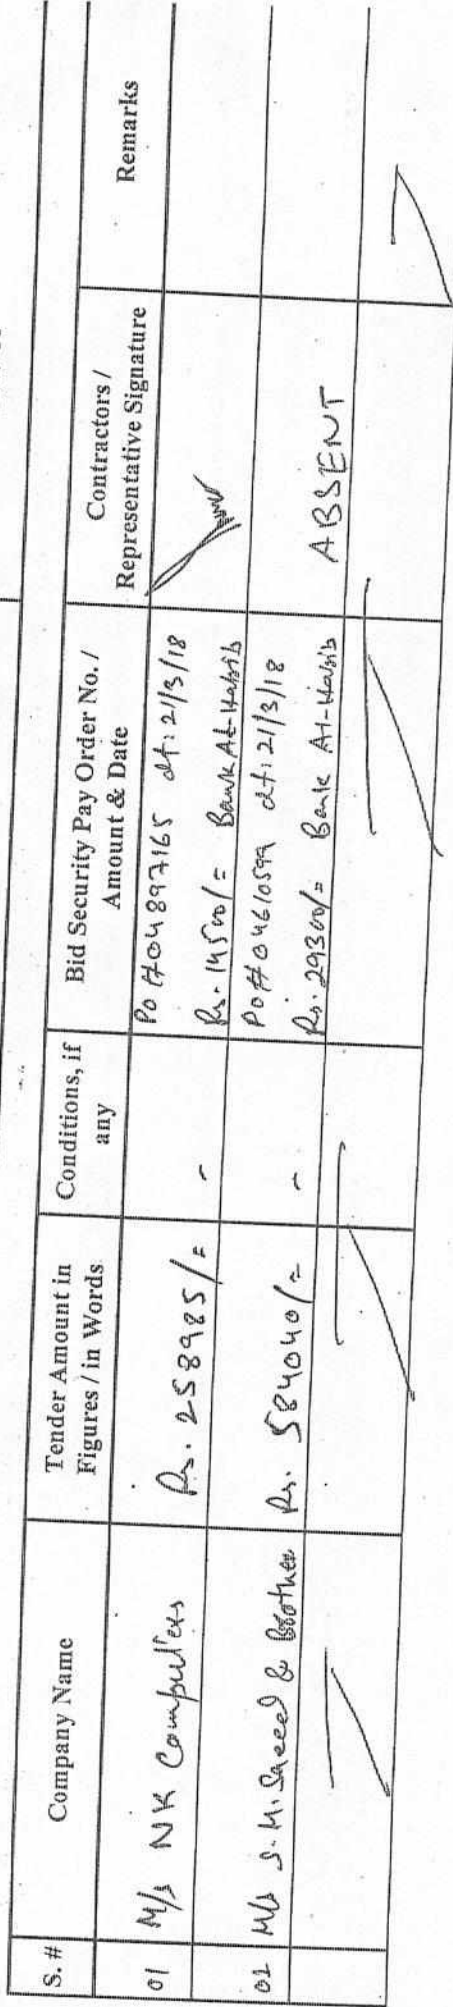 S. #
Company Name
Tender Amount in
Figures / in Words
Conditions, if
any
Bid Security Pay Order No. /
Amount & Date
Contractors /
Representative Signature
Remarks
01
M/s NK Computers
Rs. 258985/=
-
PO#04897165 dt: 21/3/18
Rs. 14500/= Bank Al-Habib
02
M/s S.M. Saeed & Brother
Rs. 584040/=
-
PO#04610599 dt: 21/3/18
Rs. 29300/= Bank Al-Habib
ABSENT